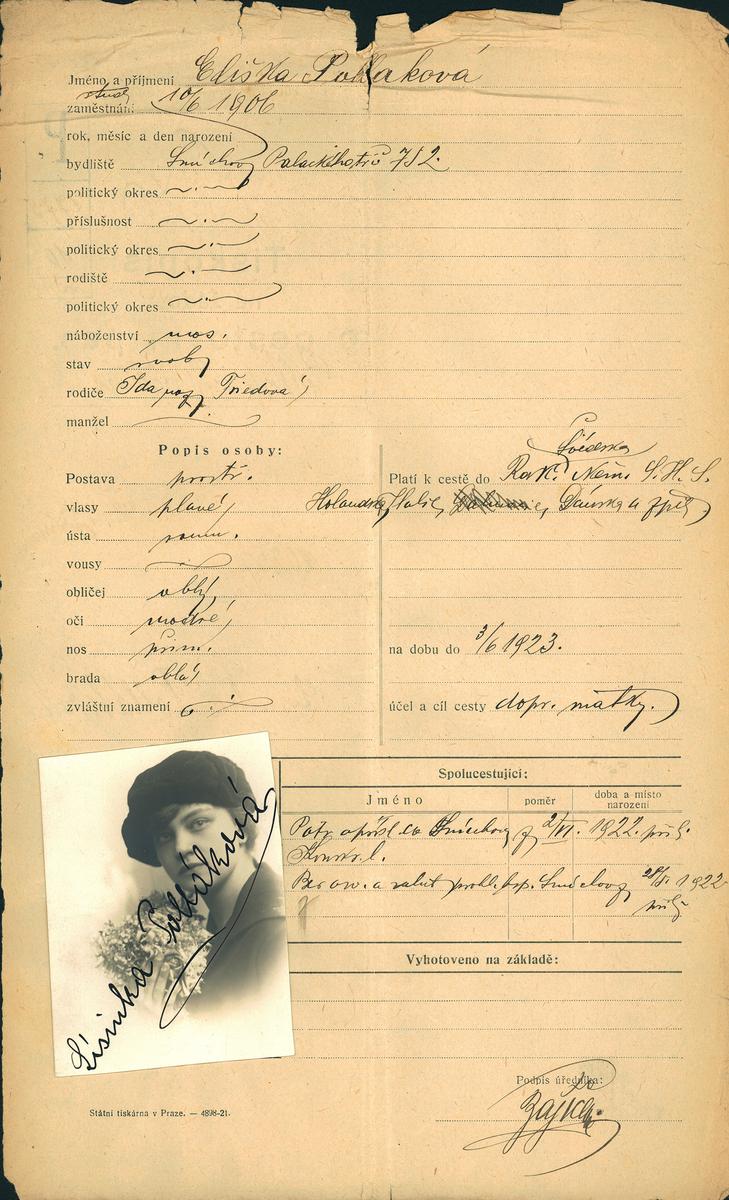 Jméno a příjmení Eliška Pollaková
zaměstnání stud. 10/6 1906
rok, měsíc a den narození
bydliště Smíchov, Palackého tř. 752.
politický okres
příslušnost
politický okres
rodiště
politický okres
náboženství mos.
stav svob.
rodiče Ida roz.
manžel
Popis osoby:
Postava prostř.
vlasy plavé
ústa soum.
vousy
obličej oblý
oči modré
nos přim.
brada oblá
zvláštní znamení
Švédska
Platí k cestě do Rak. Něm. S.H.S.
Holandska, Italie, Dánska a zpět
na dobu do 3/6 1923.
účel a cíl cesty dopr. matky.
Spolucestující:
Jméno
poměr
doba a místo narození
Smíchov 2/VI. 1922 příl.
Smíchov 1922
příl.
Vyhotoveno na základě:
Podpis úředníka:
Lisinka Pollaková
Státní tiskárna v Praze. — 4898-21.